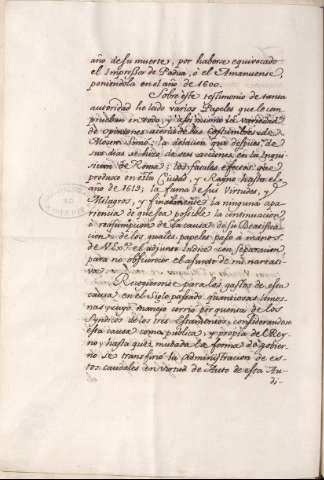 año de su muerte, por haberse equivocado
el Impressor de Padua, ó el Amanuense,
poniendola en el año de 1600.
Sobre este testimonio de tanta
autoridad he leido varios Papeles que lo com
prueban en todo, y descubren la variedad
de opiniones acerca de las costumbres de
Mossen Simó; la detencion que despues de
sus dias se hizo de sus acciones en la Inqui
sicion de Roma; los fatales efectos que
produxo en esta Ciudad, y Reyno hasta el
año de 1619; la fama de sus Virtudes, y
Milagros, y finalmente la ninguna apa
riencia de que sea posible la continuacion
ó reassumpcion de la causa de su Beatifica
cion de los quales papeles paso a manos
de V. Ex.ª el adjunto Indice con separacion
para no obscurecer el asunto de mi narrati
va.
Recogieronse para los gastos de esta
causa en el Siglo pasado quantiosas limos
nas, cuyo manejo corrio por quenta de los
Syndicos de los tres Estamentos, considerandose
esta causa como publica, y propia de el Rey
no, y hasta que mudada la forma de gobier
no se transfirió la Administracion de es
tos caudales en virtud de Auto de esta Au
di-